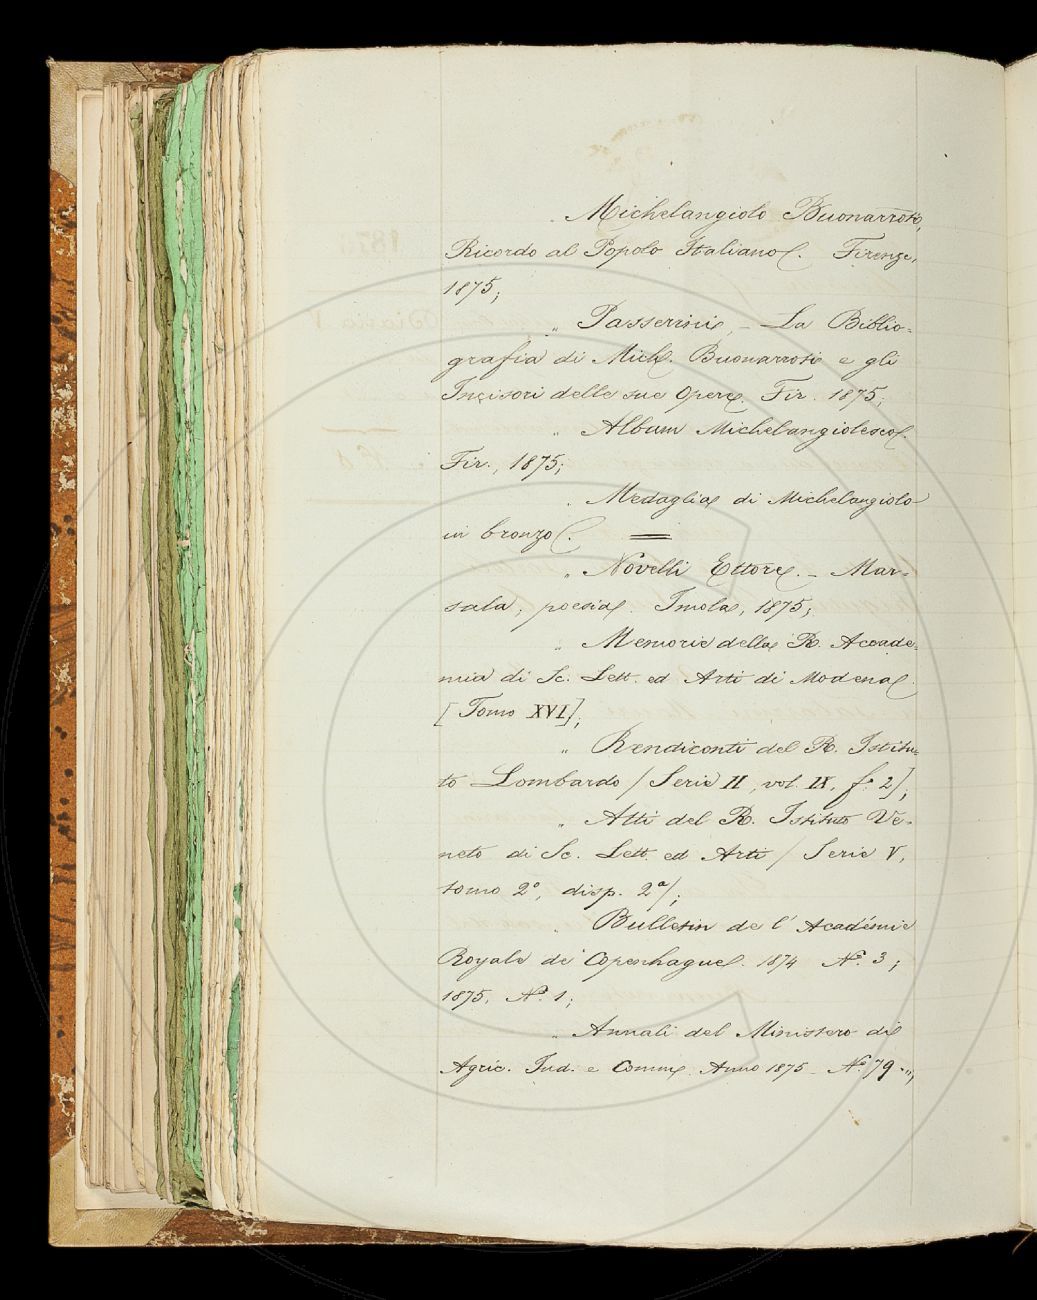 Michelangiolo Buonarroti,
Ricordo al Popolo Italiano. Firenze,
1875;
„ Passerini, – La Biblio-
grafia di Mich. Buonarroti e gli
Incisori delle sue Opere. Fir. 1875;
„ Album Michelangiolesco.
Fir., 1875;
„ Medaglia di Michelangiolo
in bronzo.
„ Novelli Ettore. – Mar-
sala, poesia. Imola, 1875;
„ Memorie della R. Accade-
mia di Sc. Lett. ed Arti di Modena.
[Tomo XVI];
„ Rendiconti del R. Istitu-
to Lombardo [Serie II, vol. IX, f.º 2];
„ Atti del R. Istituto Ve-
neto di Sc. Lett. ed Arti [Serie V,
tomo 2º, disp. 2ª];
„ Bulletin de l'Académie
Royale de Copenhague. 1874 Nº. 3;
1875, Nº. 1;
„ Annali del Ministero di
Agric. Ind. e Comm. Anno 1875 – Nº. 79 „;